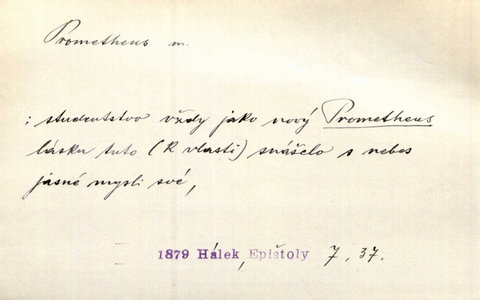 Prometheus m.
: studentstvo vždy jako nový Prometheus
lásku tuto (k vlasti) snášelo s nebes
jasné mysli své,
1879 Hálek, Epištoly 7, 37.